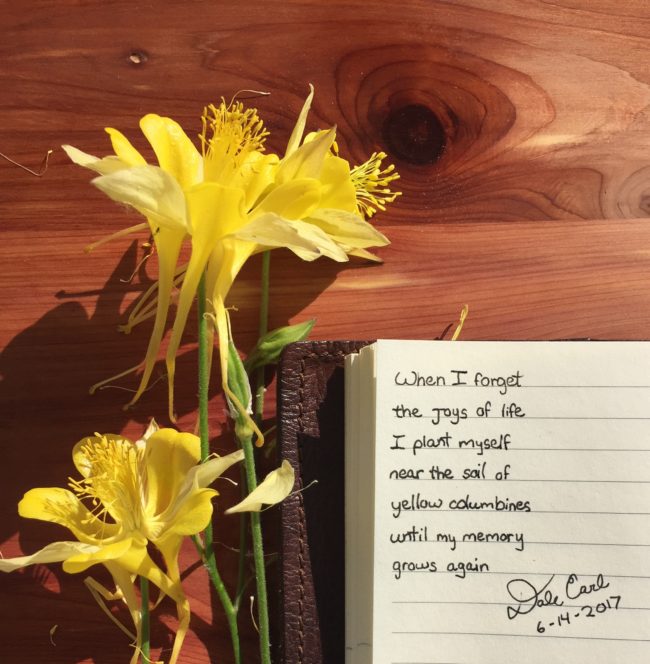 When I forget
the joys of life
I plant myself
near the soil of
yellow columbines
until my memory
grows again
Dale Earl
6-14-2017